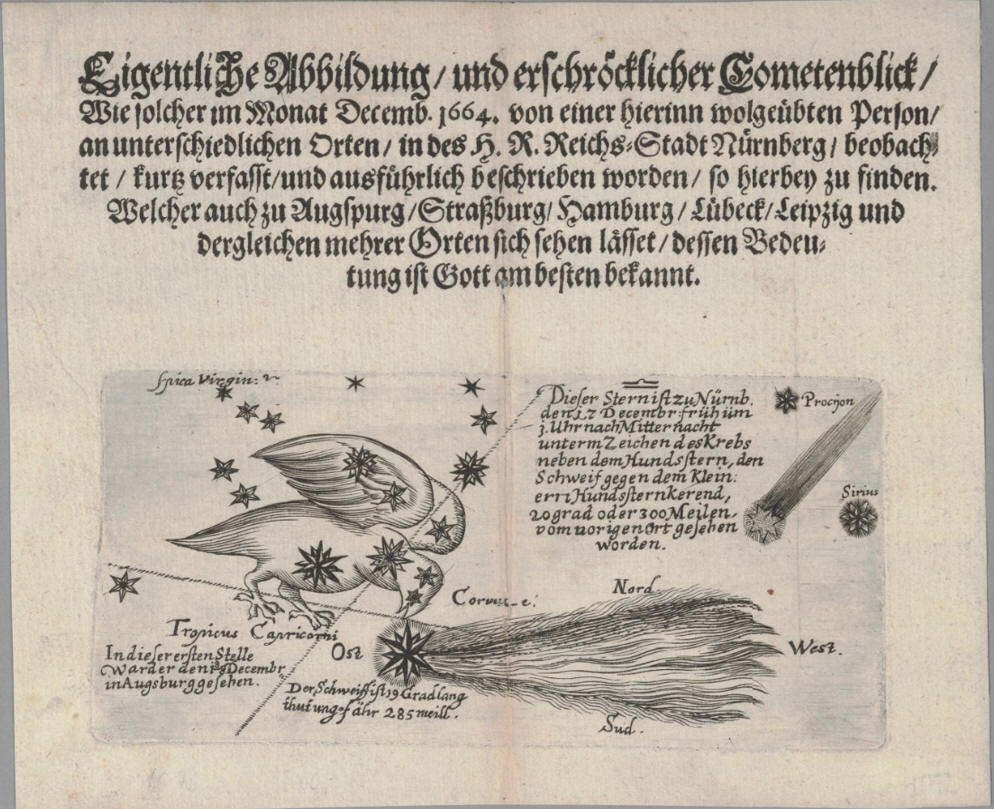 Eigentliche Abbildung / und erschröcklicher Cometenblick /
Wie solcher im Monat Decemb. 1664. von einer hierinn wolgeübten Person /
an unterschiedlichen Orten / in des H. R. Reichs-Stadt Nürnberg / beobach-
tet / kurtz verfasst / und ausführlich beschrieben worden / so hierbey zu finden.
Welcher auch zu Augspurg / Straßburg / Hamburg / Lübeck / Leipzig und
dergleichen mehrer Orten sich sehen lässet / dessen Bedeu-
tung ist Gott am besten bekannt.
Spica Virgin:
Dieser Stern ist zu Nürnb.
den 17 Decembr früh um
3. Uhr nach Mitternacht
unterm Zeichen des Krebs
neben dem Hundsstern, den
Schweif gegen dem Klein:
ern Hundsstern kerend,
20 grad oder 300 Meilen
vom vorigen Ort gesehen
worden.
Procyon
Sirius
Nord.
Tropicus Capricorni
Ost
West.
In dieser ersten Stelle
war der den Decembr
in Augsburg gesehen.
Der Schweiff ist 19 Grad lang
thut ungefähr 285 meill.
Sud.